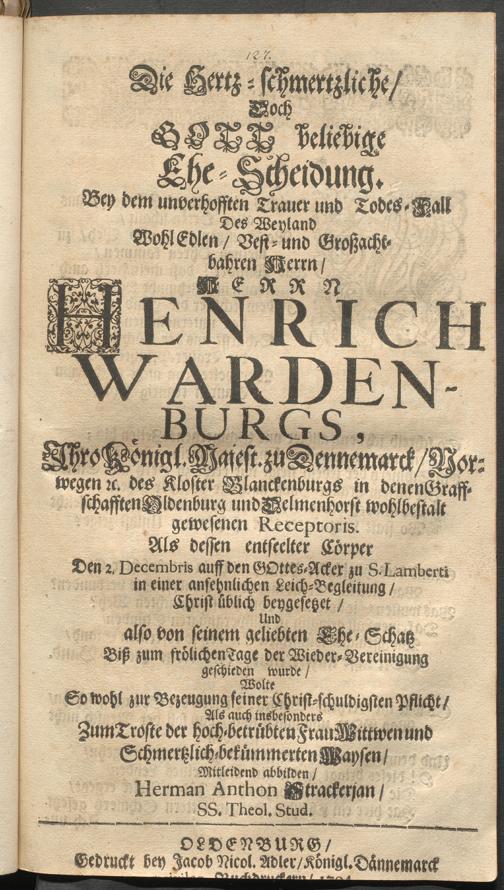 127.
Die Hertz-schmertzliche/
Doch
GOTT beliebige
Ehe-Scheidung.
Bey dem unverhofften Trauer und Todes-Fall
Des Weyland
WohlEdlen/ Vest- und Großacht-
bahren Herrn/
HERRN
HENRICH
WARDEN-
BURGS,
Ihro Königl. Majest. zu Dennemarck/ Nor-
wegen ꝛc. des Kloster Blanckenburgs in denen Graff-
schafften Oldenburg und Delmenhorst wohlbestalt
gewesenen Receptoris.
Als dessen entseelter Cörper
Den 2. Decembris auff den GOttes-Acker zu S. Lamberti
in einer ansehnlichen Leich-Begleitung/
Christ üblich beygesetzet/
Und
also von seinem geliebten Ehe-Schatz
Biß zum frölichen Tage der Wieder-Vereinigung
geschieden wurde/
Wolte
So wohl zur Bezeugung seiner Christ-schuldigsten Pflicht/
Als auch insbesonders
Zum Troste der hoch-betrübten Frau Wittwen und
Schmertzlich-bekümmerten Waysen/
Mitleidend abbilden/
Herman Anthon Strackerjan/
SS. Theol. Stud.
OLDENBURG/
Gedruckt bey Jacob Nicol. Adler/ Königl. Dännemarck
Buchdruckern/